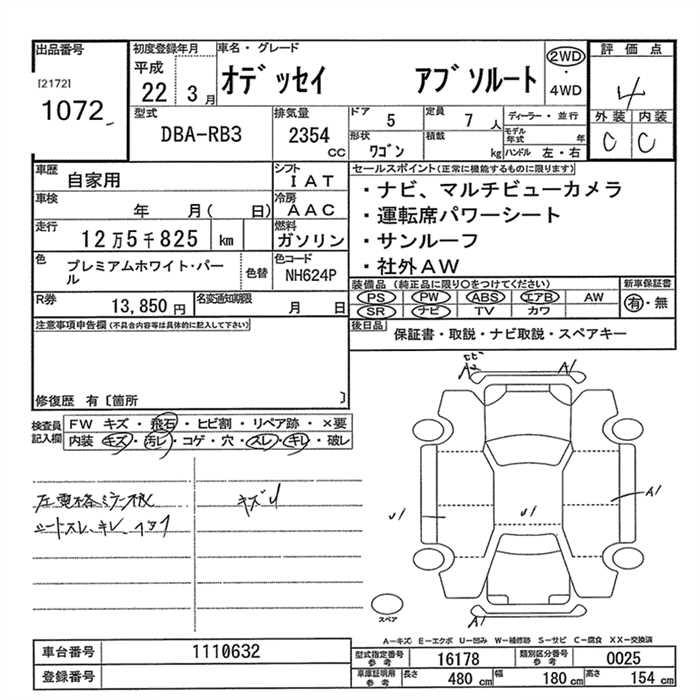 出品番号
[2172]
1072
初度登録年月
平成
22 3月
車名・グレード
オデッセイ アブソルート
2WD
・
4WD
評価点
4
外装 内装
C C
型式
DBA-RB3
排気量
2354
CC
ドア
5
定員
7人
ディーラー・並行
形状
ワゴン
積載
kg
モデル年式 年
ハンドル 左・右
車歴
自家用
シフト
IAT
車検
年 月( 日)
冷房
AAC
走行
12万5千825 km
燃料
ガソリン
色
プレミアムホワイト・パール
色替
色コード
NH624P
R券
13,850円
名変通知期限
月 日
セールスポイント(正常に機能するものに限ります)
・ナビ、マルチビューカメラ
・運転席パワーシート
・サンルーフ
・社外AW
装備品(純正品に限り〇をつけてください)
PS PW ABS エアB AW
SR ナビ TV カワ
新車保証書
有・無
後日品
保証書・取説・ナビ取説・スペアキー
注意事項申告欄(不具合内容等は具体的に記入して下さい)
修復歴 有〔箇所 〕
検査員
記入欄
FW キズ・飛石・ヒビ割・リペア跡・×要
内装 キズ・汚レ・コゲ・穴・スレ・キレ・破レ
シートスレ、キレ、
A1
U1
U1
A1
A1
スペア
A-キズ E-エクボ U-凹み W-補修跡 S-サビ C-腐食 XX-交換済
車台番号
1110632
登録番号
型式指定番号
参考
16178
類別区分番号
参考
0025
車庫証明用
参考
長さ 480 cm
幅 180 cm
高さ 154 cm